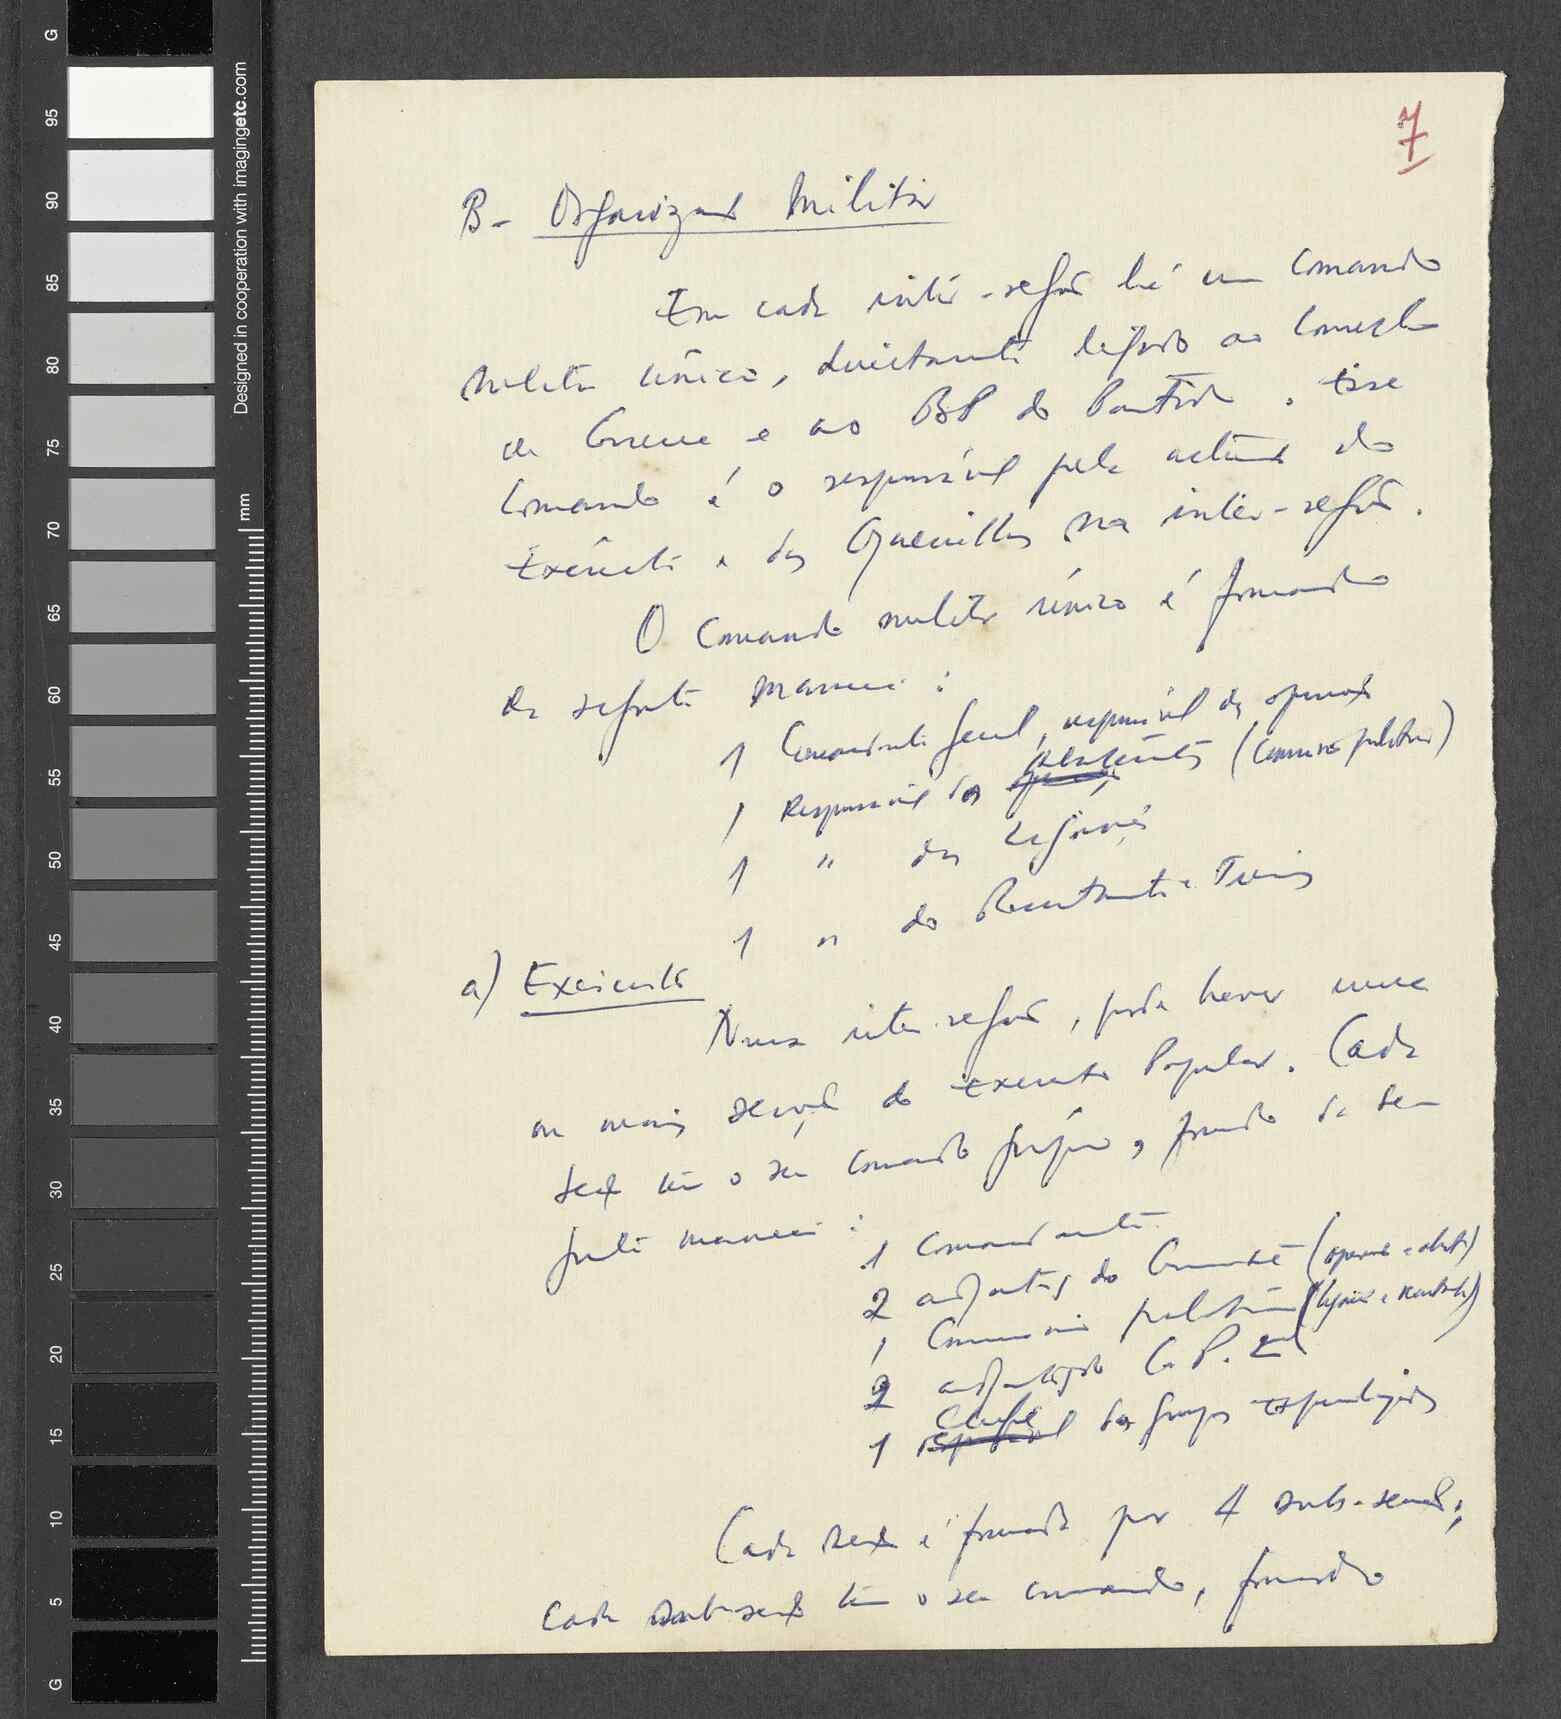 G
95
90
85
80
75
70
65
60
55
50
45
40
35
30
25
20
15
10
5
G
Designed in cooperation with imagingetc.com
mm
7
B- Organização Militar
Em cada inter-região há um Comando
Militar único, directamente ligado ao Conselho
de Guerra e ao BP do Partido. Esse
Comando é o responsável pela actividade do
Exército e das Guerrilhas na inter-região.
O Comando militar único é formado
da seguinte maneira:
1 Comandante geral, responsável das operações
1 Responsável das (Comissário político)
1 " das Ligações
1 " do Recrutamento e Treino
a) Exército
Numa inter-região, pode haver uma
ou mais secções do Exército Popular. Cada
secção tem o seu comando próprio, formado da se-
guinte maneira:
1 Comandante
2 adjuntos do Comandante
1 Comissário político (ligações e recrutamento)
2 adjuntos do C. P.
1 Chefe dos grupos especializados
Cada secção é formada por 4 sub-secções;
cada sub-secção tem o seu comando, formado